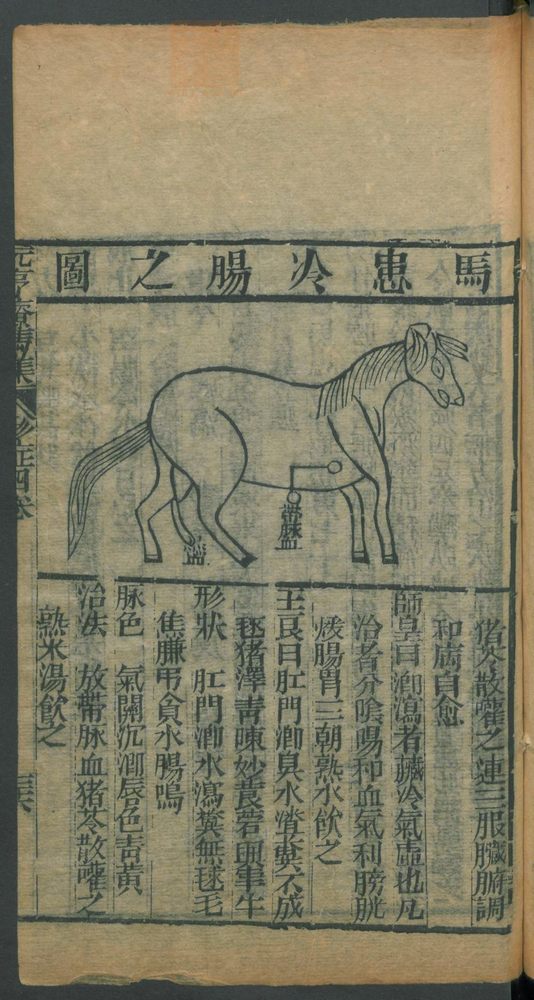 馬患冷腸之圖
帶脉血
猪苓散嚾之連三服臟腑調
和病自愈
師皇曰瀉者臟冷氣虛也凡
治者分陰陽和血氣利膀胱
煖腸胃三朝熟水飲之
王良曰肛門臭水漬糞不成
毬猪澤青
形狀 肛門水瀉糞無毬毛
焦臁吊貪水腸鳴
脉色 氣關沉唇色青黃
治法 放帶脉血猪苓散嚾之
熟米湯飲之
元亨療馬集 四卷